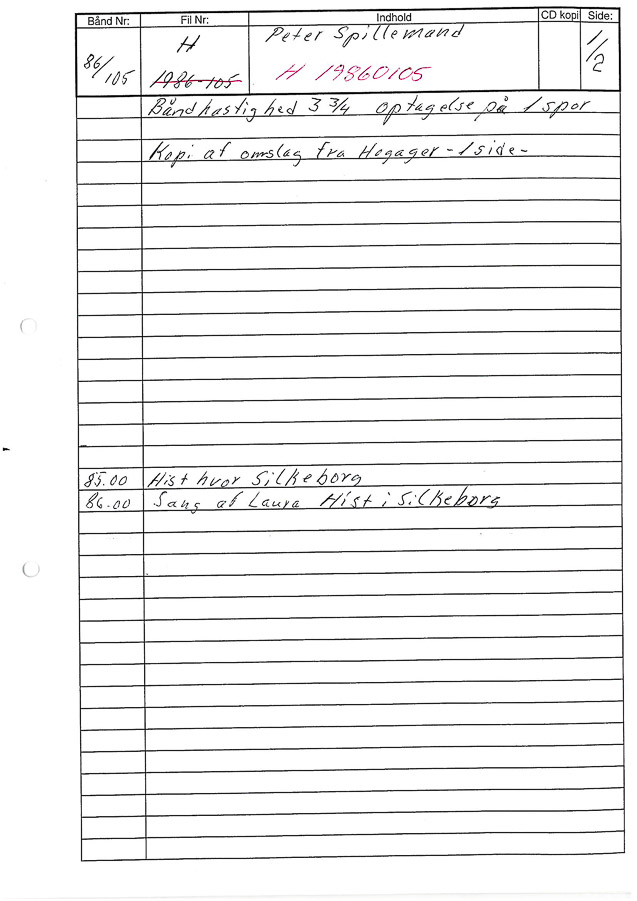 Bånd Nr: Fil Nr: Indhold CD kopi Side:
86/105 H Peter Spillemand 1/2
1986-105 H 19860105
Båndhastighed 3 3/4 optagelse på 1 spor
Kopi af omslag fra Hogager - 1 side -
85.00 Hist hvor Silkeborg
86.00 Sang af Laura Hist i Silkeborg